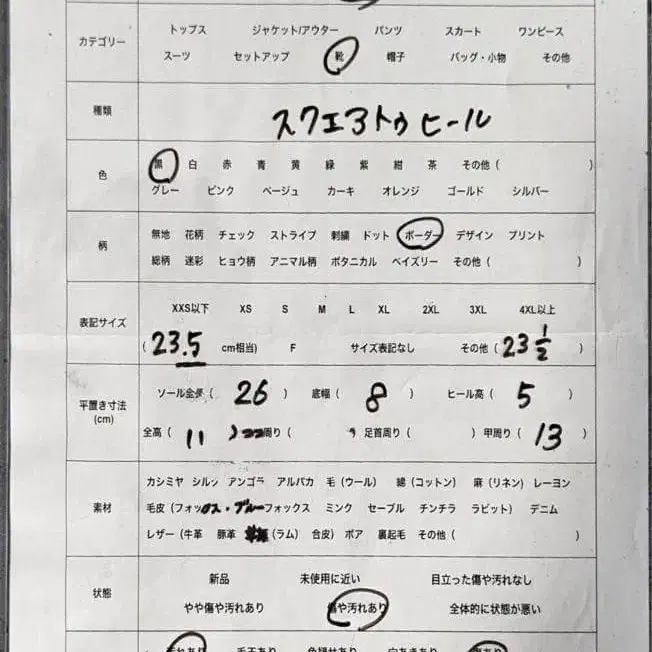 カテゴリー
トップス ジャケット/アウター パンツ スカート ワンピース
スーツ セットアップ 靴 帽子 バッグ・小物 その他
種類
スクエアトゥヒール
色
黒 白 赤 青 黄 緑 紫 紺 茶 その他 ( )
グレー ピンク ベージュ カーキ オレンジ ゴールド シルバー
柄
無地 花柄 チェック ストライプ 刺繍 ドット ボーダー デザイン プリント
総柄 迷彩 ヒョウ柄 アニマル柄 ボタニカル ペイズリー その他 ( )
表記サイズ
XXS以下 XS S M L XL 2XL 3XL 4XL以上
( 23.5 cm相当) F サイズ表記なし その他 ( 23 1/2 )
平置き寸法
(cm)
ソール全長 ( 26 ) 底幅 ( 8 ) ヒール高 ( 5 )
全高 ( 11 ) 周り ( ) 足首周り ( ) 甲周り ( 13 )
素材
カシミヤ シルク アンゴラ アルパカ 毛 (ウール) 綿 (コットン) 麻 (リネン) レーヨン
毛皮 (フォックス・ブルーフォックス ミンク セーブル チンチラ ラビット) デニム
レザー (牛革 豚革 (ラム) 合皮) ボア 裏起毛 その他 ( )
状態
新品 未使用に近い 目立った傷や汚れなし
やや傷や汚れあり 傷や汚れあり 全体的に状態が悪い
汚れあり 毛玉あり 色褪せあり 穴あきあり